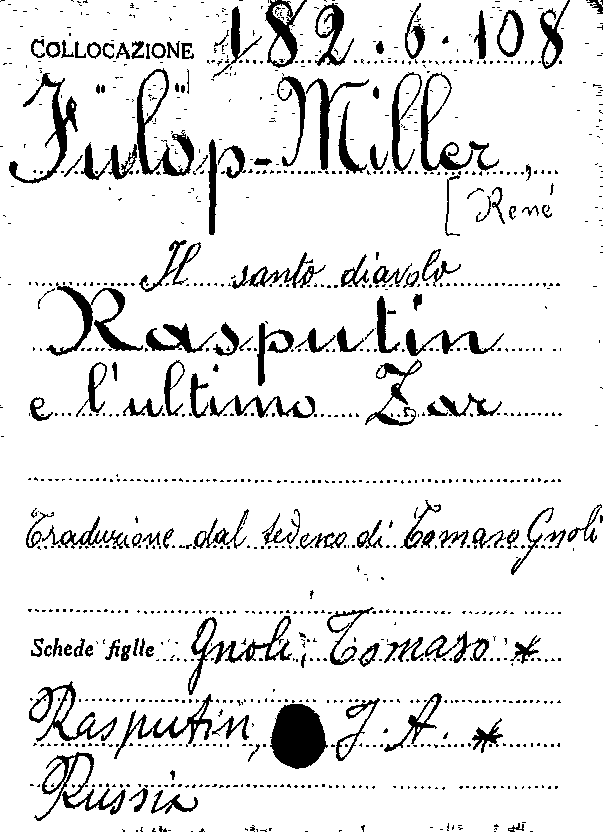 COLLOCAZIONE 182.6.108
Fülöp-Miller,
[René
Il santo diavolo
Rasputin
e l'ultimo Zar
Traduzione dal tedesco di Tomaso Gnoli
Schede figlie Gnoli, Tomaso *
Rasputin, J. A. *
Russia